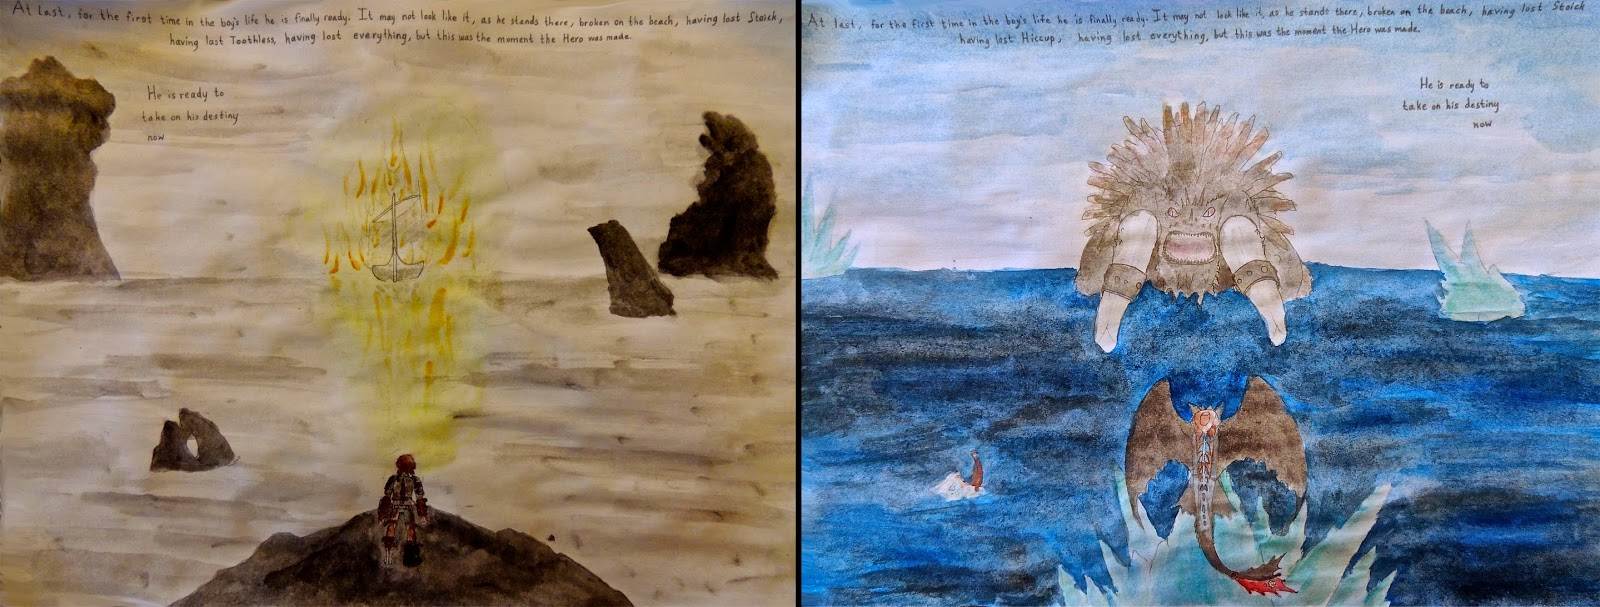 At last, for the first time in the boy's life he is finally ready. It may not look like it, as he stands there, broken on the beach, having lost Stoick,
having lost Toothless, having lost everything, but this was the moment the Hero was made.
He is ready to
take on his destiny
now
At last, for the first time in the boy's life he is finally ready. It may not look like it, as he stands there, broken on the beach, having lost Stoick
having lost Hiccup, having lost everything, but this was the moment the Hero was made.
He is ready to
take on his destiny
now